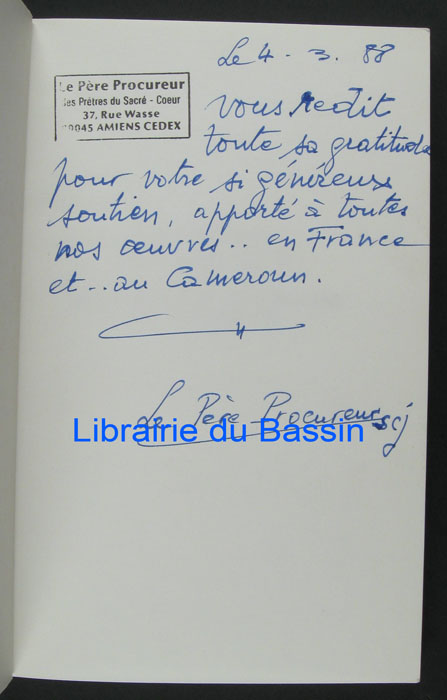 Le 4 - 3. 88
Le Père Procureur
des Prêtres du Sacré - Coeur
37, Rue Wasse
80045 AMIENS CEDEX
vous redit
toute sa gratitude
pour votre si généreux
soutien, apporté à toutes
nos œuvres.. en France
et.. au Cameroun.
Le Père Procureur scj
Librairie du Bassin